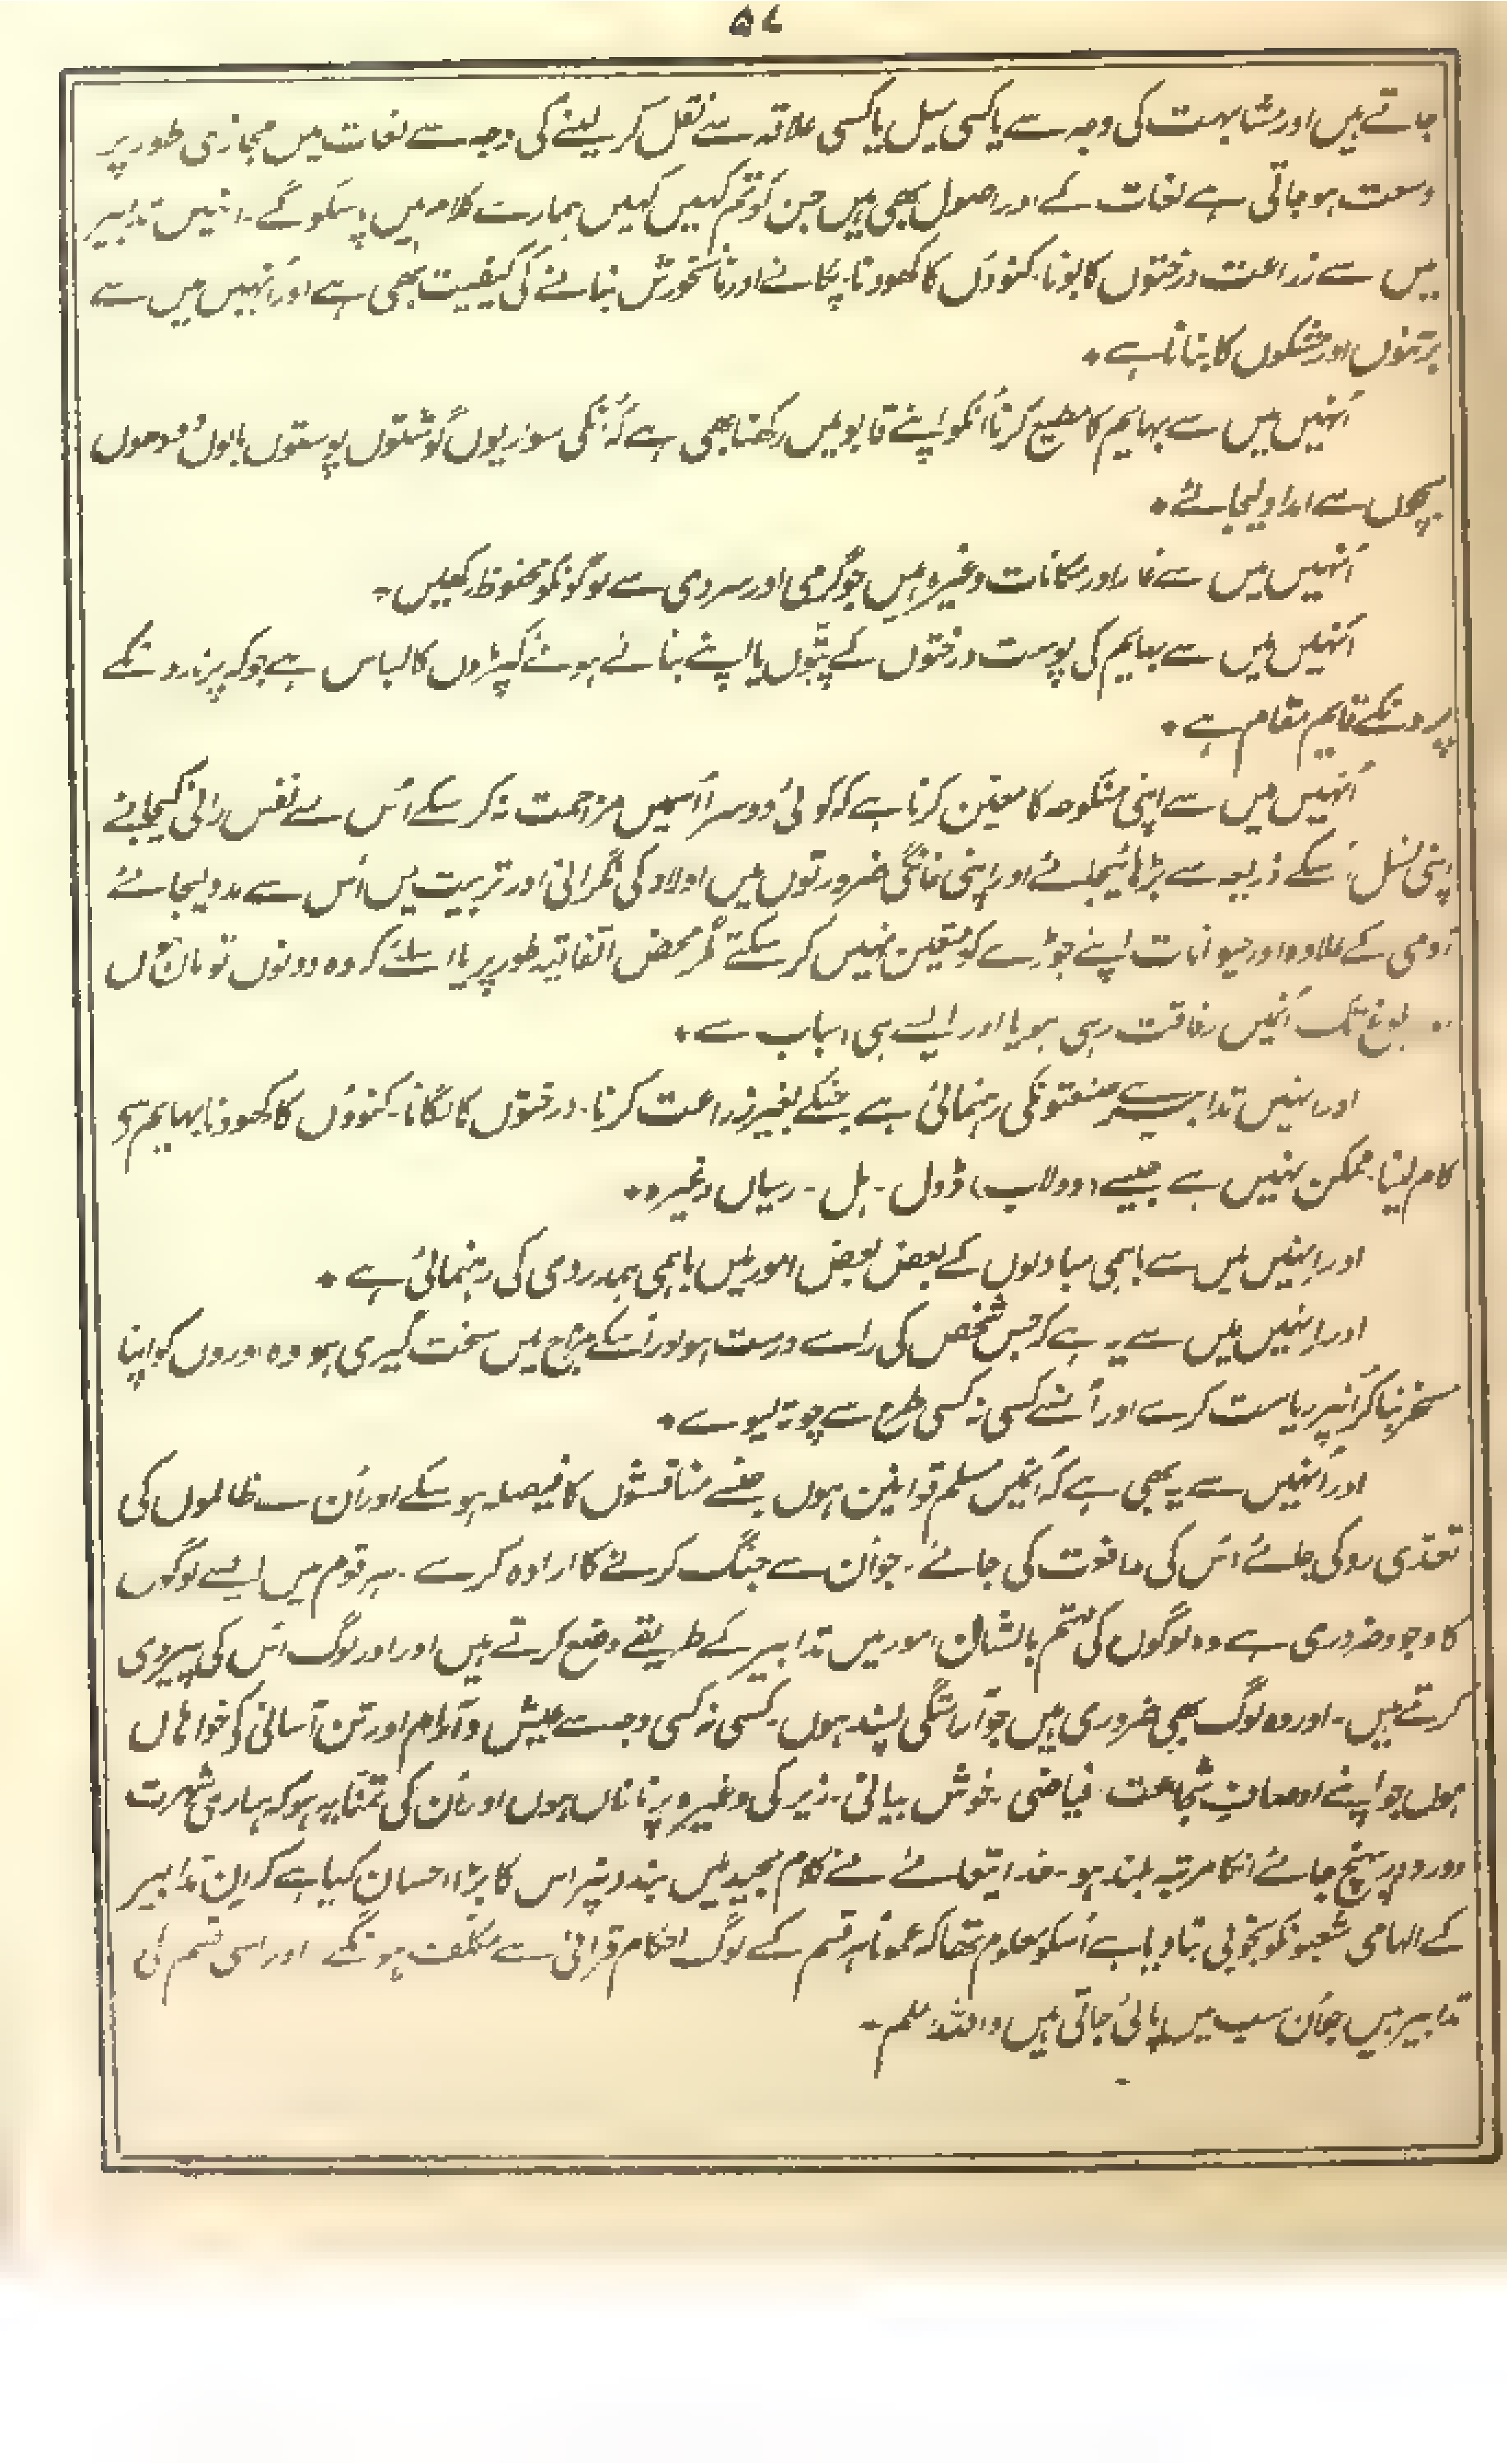 ۵۷
جاتے ہیں اور مشابہت کی وجہ سے یا کسی میل یا کسی علاقہ سے نقل کر لینے کی وجہ سے لغات میں مجازی طور پر
وسعت ہو جاتی ہے لغات کے اور اصول بھی ہیں جن کو تم کہیں کہیں ہمارے کلام میں پا سکو گے۔ انہیں تدابیر
میں سے زراعت درختوں کا بونا۔ کنووں کا کھودنا۔ پکانے اور نانخورش بنانے کی کیفیت بھی ہے اور انہیں میں سے
برتنوں اور مشکوں کا بنانا ہے۔
اُنہیں میں سے بہایم کا مطیع کرنا اُنکو اپنے قابو میں رکھنا بھی ہے کہ اُنکی سواریوں گوشتوں پوستوں بالوں دودھوں
بچوں سے امداد لیجائے۔
اُنہیں میں سے غار اور مکانات وغیرہ ہیں جو گرمی اور سردی سے لوگونکو محفوظ رکھیں۔
اُنہیں میں سے بہایم کی پوست درختوں کے پتّوں یا اپنے بنائے ہوئے کپڑوں کا لباس ہے جو کہ پرندونکے
پرونکے قایم مقام ہے۔
اُنہیں میں سے اپنی منکوحہ کا معین کرنا ہے کہ کوئی دوسرا اُسمیں مزاحمت نہ کر سکے اُس سے نفس رانی کیجائے
اپنی نسل اُسکے ذریعہ سے بڑہائیجائے اور اپنی خانگی ضرورتوں میں اولاد کی نگرانی اور تربیت میں اُس سے مدد لیجائے
آدمی کے علاوہ اور حیوانات اپنے جوڑے کو متعین نہیں کر سکتے مگر محض اتفاقیہ طور پر یا اسلئے کہ وہ دونوں توامان ہوں
بلوغ تک اُنمیں رفاقت رہی ہو یا اور ایسے ہی اسباب سے۔
اور انہیں تدابیر سے صنعتونکی رہنمائی ہے جنکے بغیر زراعت کرنا۔ درختوں کا لگانا۔ کنووں کا کھودنا بہایم سے
کام لینا ممکن نہیں ہے جیسے (دولاب) ڈول۔ ہل۔ رسیاں وغیرہ۔
اور انہیں میں سے باہمی مبادلوں کے بعض بعض امور میں باہمی ہمدردی کی رہنمائی ہے۔
اور انہیں میں سے یہ ہے کہ جس شخص کی رائے درست ہو اور اُسکے مزاج میں سخت گیری ہو وہ اوروں کو اپنا
مسخر بنا کر اُنپر ریاست کرے اور اُنسے کسی نہ کسی طرح سے چوتہ لیوے۔
اور اُنہیں سے یہ بھی ہے کہ اُنمیں مسلم قوانین ہوں جنسے مناقشوں کا فیصلہ ہو سکے اور اُن سے ظالموں کی
تعدّی روکی جائے اُس کی مدافعت کی جائے۔ جو اُن سے جنگ کرنے کا ارادہ کرے۔ ہر قوم میں ایسے لوگوں
کا وجود ضروری ہے وہ لوگوں کی مہتم بالشان امور میں تدابیر کے طریقے وضع کرتے ہیں اور اور لوگ اُس کی پیروی
کرتے ہیں۔ اور وہ لوگ بھی ضروری ہیں جو آراستگی پسند ہوں۔ کسی نہ کسی وجہ سے عیش و آرام اور تن آسانی کے خواہاں
ہوں جو اپنے اوصاف شجاعت۔ فیاضی۔ خوش بیانی۔ زیرکی وغیرہ پر نازاں ہوں اور اُن کی تمنّا یہ ہو کہ ہماری شہرت
دور دور پہنچ جائے انکا مرتبہ بلند ہو۔ خدا یتعالے نے کلام مجید میں بندونپر اس کا بڑا احسان کیا ہے کہ اِن تدابیر
کے الہامی شعبونکو بخوبی بتا دیا ہے اُسکو معلوم تھا کہ عموماً ہر قسم کے لوگ احکام قرآنی سے مکلف ہونگے اور اسی قسم کی
تدابیر ہیں جو اُن سب میں پائی جاتی ہیں واللہ اعلم۔